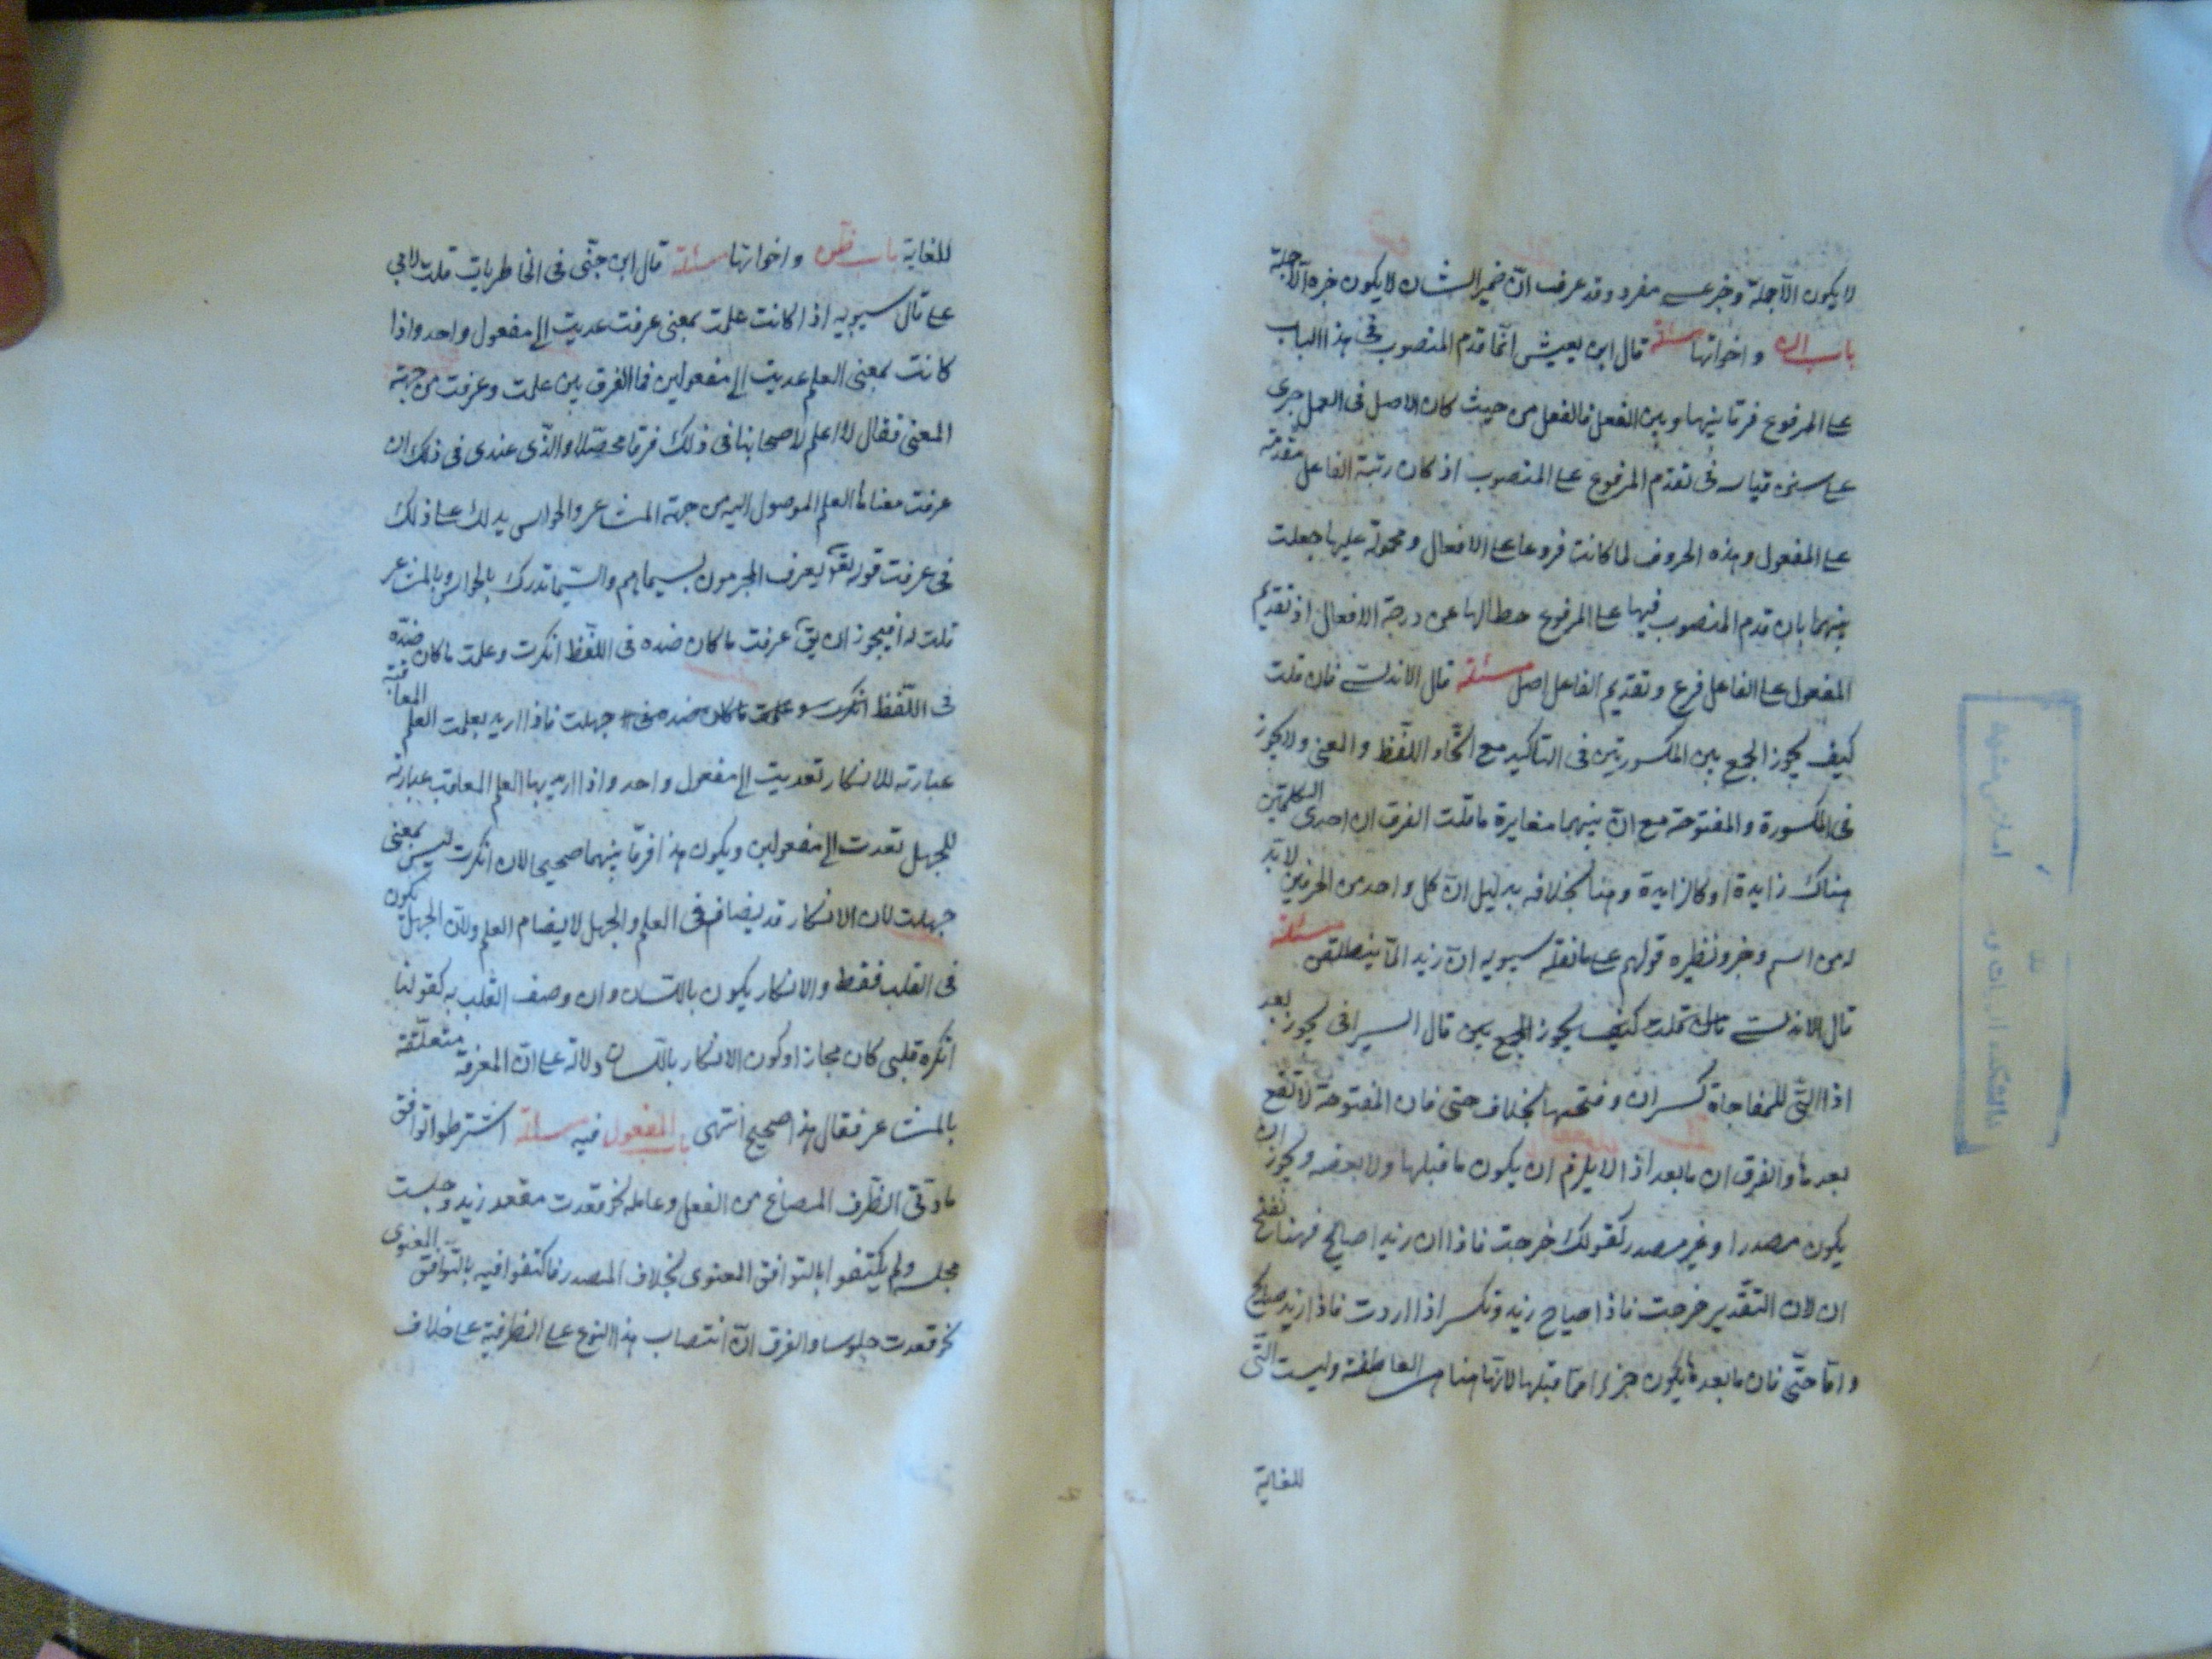 لا يكون الآجملة وخبر عسى مفرد وقد عرفت انّ ضمير الشان لا يكون خبره الّا جملة
باب ان واخواتها مسئلة قال ابن يعيش انّما قدم المنصوب فى هذا الباب
على المرفوع فرقا بينها وبين الفعل فالفعل من حيث كان الاصل فى العمل جرى
على سنن قياسه فى تقدّم المرفوع على المنصوب اذ كان رتبة الفاعل مقدمة
على المفعول وهذه الحروف لما كانت فروعا على الافعال ومحمولة عليها جعلت
بينهما بان قدم المنصوب فيها على المرفوع حطا لها عن درجة الافعال اذ تقديم
المفعول على الفاعل فرع وتقديم الفاعل اصل مسئلة قال الاندلسى فان قلت
كيف يجوز الجمع بين المكسورتين فى التاكيد مع اتّحاد اللفّظ والمعنى ولا يجوز
فى المكسورة والمفتوحة مع انّ بينهما مغايرة ما قلت الفرق ان احدى الكلمتين
هناك زايدة او كالزايدة وهنا بخلافه بدليل انّ كل واحد من الحرفين لا بدّ
له من اسم وخبر ونظيره قولهم على ما نقله سيبويه انّ زيدا لمّا ينطلقن مسئلة
قال الاندلسى فان قلت كيف يجوز الجمع بين قال السيرافى يجوز بعد
اذا التّى للمفاجاة كسر ان وفتحها بخلاف حتى فان المفتوحة لا تقع
بعدها والفرق ان ما بعد اذا لا يلزم ان يكون ما قبلها ولا بعضه ويجوز ان
يكون مصدرا وغير مصدر كقولك خرجت فاذا ان زيدا صايح فهنا تفتح
ان لان التقّدير خرجت فاذا صياح زيد وتكسر اذا اردت فاذا زيد صايح
وامّا حتّى فان ما بعدها يكون جزءا ممّا قبلها لانّها هنا هى العاطفة وليست التّى
للغاية
للغاية باب ظنّ واخواتها مسئلة قال ابن جنّى فى الخاطريات قلت لابى
على قال سيبويه اذا كانت علمت بمعنى عرفت عديت الى مفعول واحد واذا
كانت بمعنى العلم عديت الى مفعولين فما الفرق بين علمت وعرفت من جهة
المعنى فقال لا اعلم لاصحابنا فى ذلك فرقا محصّلا والذّى عندى فى ذلك ان
عرفت معناها العلم الموصول اليه من جهة المشاعر والحواس يدلك على ذلك
فى عرفت قوله تعالى يعرف المجرمون بسيماهم والسّيما تدرك بالحواس وبالمشاعر
قلت له افيجوز ان يق عرفت ما كان ضده فى اللفّظ انكرت وعلمت ما كان ضدّه
فى اللفّظ انكرت وعلمت ما كان ضده فى جهلت فاذا اريد بعلمت العلم المعاقبة
عبارته للانكار تعديت الى مفعول واحد واذا اريد بها العلم المعاقب عبارته
للجهل تعدت الى مفعولين ويكون هذا فرقا بينهما صحيحا لان انكرت ليس بمعنى
جهلت لان الانكار قد يضام فى العلم والجهل لا يضام العلم ولانّ الجهل يكون
فى القلب فقط والانكار يكون باللسان وان وصف القلب به كقولنا
انكره قلبى كان مجازا وكون الانكار باللّسان دلالة على انّ المعرفة متعلّقة
بالمشاعر فقال هذا صحيح انتهى باب المفعول فيه مسئلة اشترطوا توافق
مادّتى الظرف المصاغ من الفعل وعامله نحو قعدت مقعد زيد وجلست
مجلسه ولم يكتفوا بالتوافق المعنوى بخلاف المصدر فاكتفوا فيه بالتّوافق المعنوى
نحو قعدت جلوسا والفرق انّ انتصاب هذا النوع على الظرفية على خلاف